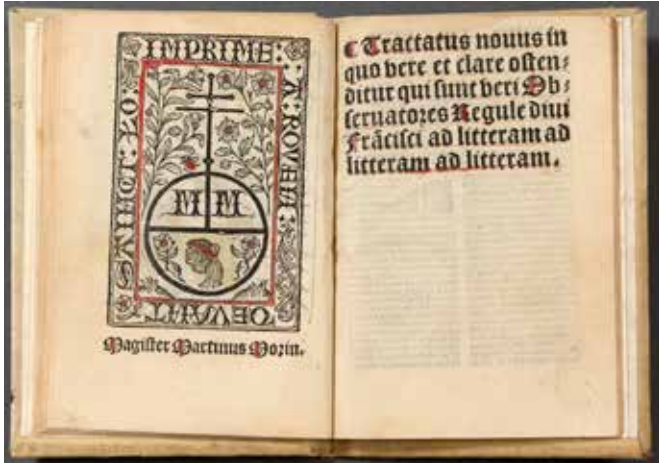 IMPRIME: A: ROVEN:
DEVANT
SAINCT: LO:
M M
Magister Martinus Morin.
¶ Tractatus nouus in
quo vere et clare osten⸗
ditur qui sunt veri Ob⸗
seruatores Regule diui
Frãcisci ad litteram ad
litteram ad litteram.